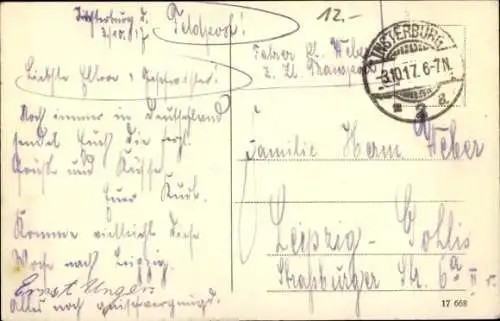 Insterburg d.
3/10.17
Feldpost!
12.-
INSTERBURG
-3.10.17. 6-7N.
Fahrer Weber
z. Zt. Transport
Liebste Eltern & Geschwister!
Noch immer in Deutschland
sendet Euch die herzl.
Grüße und Küsse
Euer Kurt.
Komme vielleicht diese
Woche nach Leipzig.
Ernst Unger
Alles noch quietschvergnügt.
Familie Herm. Weber
Leipzig-Gohlis
Straßburger Str. 6a II r.
17 668